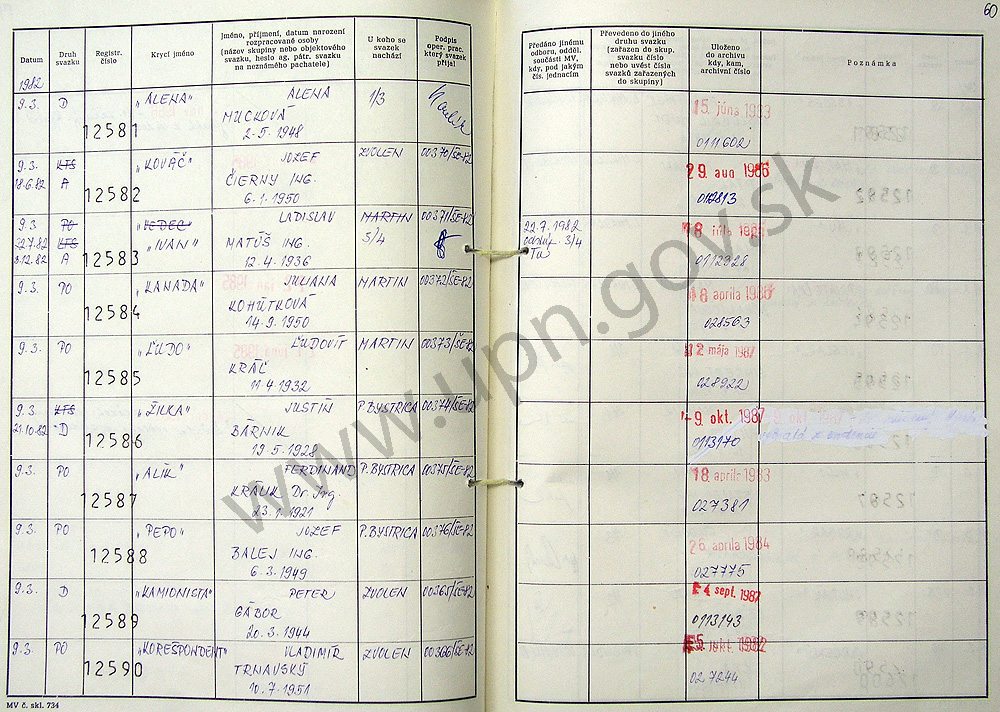 60
Datum
Druh svazku
Registr. číslo
Krycí jméno
Jméno, příjmení, datum narození rozpracované osoby (název skupiny nebo objektového svazku, heslo ag. pátr. svazku na neznámého pachatele)
U koho se svazek nachází
Podpis oper. prac. který svazek přijal
Předáno jinému odboru, odděl. součásti MV, kdy, pod jakým čís. jednacím
Převedeno do jiného druhu svazku (zařazen do skup. svazku číslo nebo uvést čísla svazků zařazených do skupiny)
Uloženo do archivu kdy, kam, archivní číslo
Poznámka
1982
9.3. D 12581 „ALENA" ALENA MUCKOVÁ 2.5.1948 1/3
15. júna 1983 0111602
9.3. KTS 18.6.82 A 12582 „KOVÁČ" JOZEF ČIERNY ING. 6.1.1950 ZVOLEN 00370/ŠE-82
29. aug 1986 0112813
9.3. PO 22.7.82 KTS 3.12.82 A 12583 „IVAN" LADISLAV MATÚŠ ING. 12.4.1936 MARTIN 3/4 00371/ŠE-82
22.7.1982 odstúp. 3/4
18 júla
9.3. PO 12584 „KANADA" JULIANA KOHÚTKOVÁ 14.9.1950 MARTIN 00372/ŠE-82
18 apríla 028563
9.3. PO 12585 „ĽUDO" ĽUDOVÍT KRÁĽ 11.4.1932 MARTIN 00373/ŠE-82
12 mája 1987 028922
9.3. KTS 21.10.82 D 12586 „ŽILKA" JUSTIN BÁRNIK 19.5.1928 P.BYSTRICA 00374/ŠE-82
-9. okt. 1987 0113170
9.3. PO 12587 „ALÍK" FERDINAND KRÁLIK Dr. Ing. 23.1.1921 P.BYSTRICA 00375/ŠE-82
18. apríla 1983 027381
9.3. PO 12588 „PEPO" JOZEF BALEJ ING. 6.3.1949 P.BYSTRICA 00376/ŠE-82
26 apríla 1984 027775
9.3. D 12589 „KAMIONISTA" PETER GÁBOR 20.3.1944 ZVOLEN 00365/ŠE-82
-4 sept. 1987 0113143
9.3. PO 12590 „KOREŠPONDENT" VLADIMÍR TRNAVSKÝ 10.7.1951 ZVOLEN 00366/ŠE-82
027244
MV č. skl. 734
www.upn.gov.sk